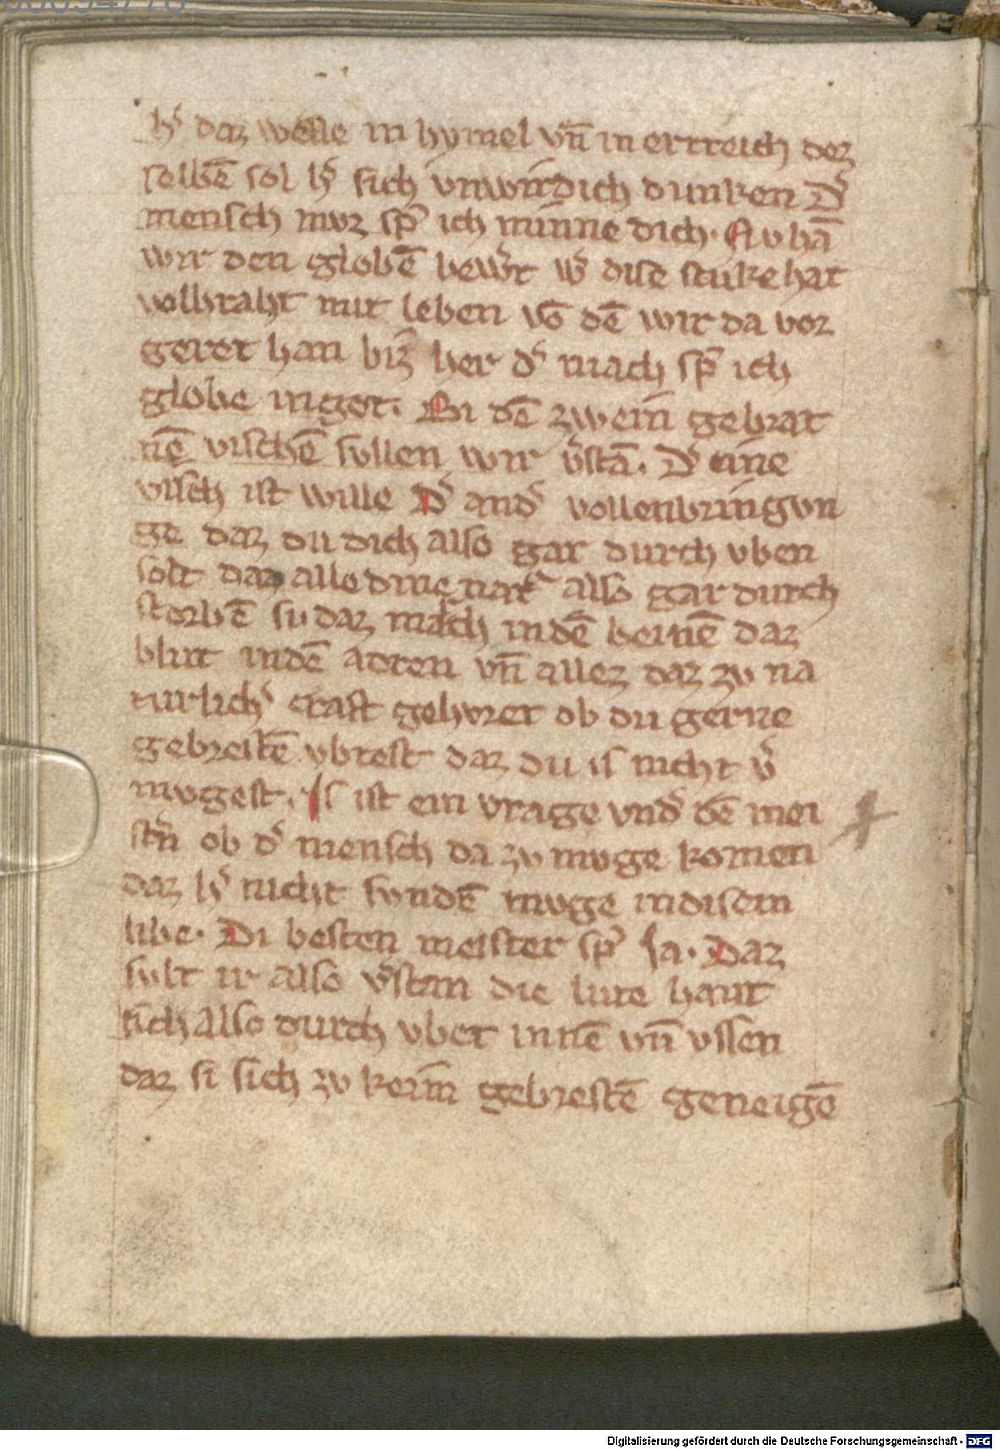 h͛ daz welle in hymel vn̄ in ertreich dez
selbē sol h͛ sich vnwirdich dunken D͛
mensch muz sp͛ ich minne dich. Nv hā
wir den globē bew͛t w͛ dise stuke hat
volbraht mit leben vō dē wir da vor
geret han biz her d͛ mach sp͛ ich
globe in got. Bi dē zwein gebrat
nē vischē svllen wir v͛stā. D͛ eine
visch ist wille D͛ and͛ vollenbringvn
ge daz du dich also gar durch vben
solt daz alle dine nat͛ also gar durch
storbē si daz march in dē beinē daz
blut in dē adren vn̄ allez daz zv na
turlich͛ craft gehoret ob du gerne
gebrestē vbtest daz du is nicht v͛
mvgest. Is ist ein vrage vnd͛ dē mei
st͛n ob d͛ mensch da zv mvge komen
daz h͛ nicht svndē mvge in disem
libe. Di besten meister sp͛ Ja. Daz
svlt ir also v͛stan die lute hant
sich also durch vbet innē vn̄ vssen
daz si sich zv keim̄ gebrestē geneigē
Digitalisierung gefördert durch die Deutsche Forschungsgemeinschaft - DFG